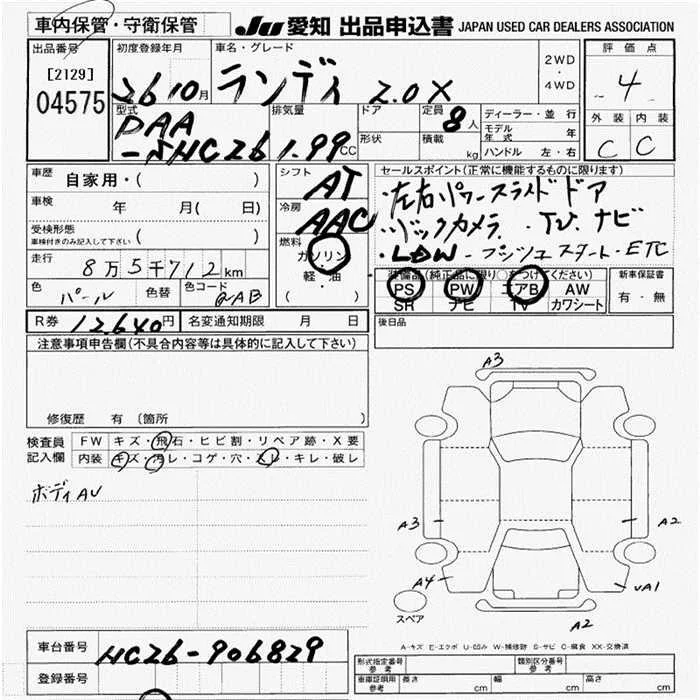 車内保管・守衛保管
JU 愛知 出品申込書 JAPAN USED CAR DEALERS ASSOCIATION
出品番号
[2129]
04575
初度登録年月
26 10月
車名・グレード
ランディ 2.0X
2WD
・
4WD
評価点
4
外装 内装
C C
型式
DAA
-SHC26
排気量
1.99CC
ドア
形状
定員
8人
積載
kg
ディーラー・並行
モデル年式 年
ハンドル 左・右
車歴
自家用・( )
車検
年 月( 日)
受検形態
車検付きのみ記入して下さい
( )
走行
8万5千712km
色
パール
色替
色コード
QAB
R券 12,640円
名変通知期限 月 日
シフト
AT
冷房
AAC
燃料
ガソリン
軽・油
( )
セールスポイント(正常に機能するものに限ります)
・左右パワースライドドア
・バックカメラ・TV.ナビ
・LDW-プッシュスタート・ETC
装備品(純正品に限り○をつけてください)
PS PW エアB AW
SR ナビ TV カワシート
新車保証書
有・無
後日品
注意事項申告欄(不具合内容等は具体的に記入して下さい)
修復歴 有〔箇所 〕
検査員
記入欄
FW キズ・飛石・ヒビ割・リペア跡・X要
内装 キズ・汚レ・コゲ・穴・スレ・キレ・破レ
ボディAU
A3
A3
A2
A4
UA1
スペア
A2
A-キズ E-エクボ U-凹み W-補修跡 S-サビ C-腐食 XX-交換済
車台番号 HC26-906829
登録番号
形式指定番号
参考
類別区分番号
参考
車庫証明用
参考
長さ cm 幅 cm 高さ cm